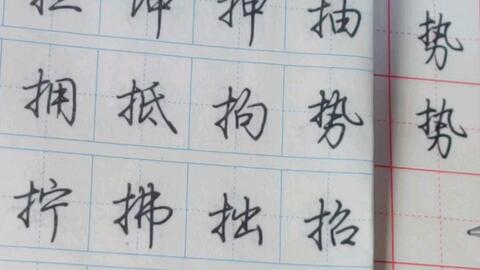 押 抽 势
拥 抵 拘 势 势
拧 拂 拙 招